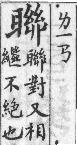 ㄌㄧㄢ
聯
聯對又相
繼不絕也